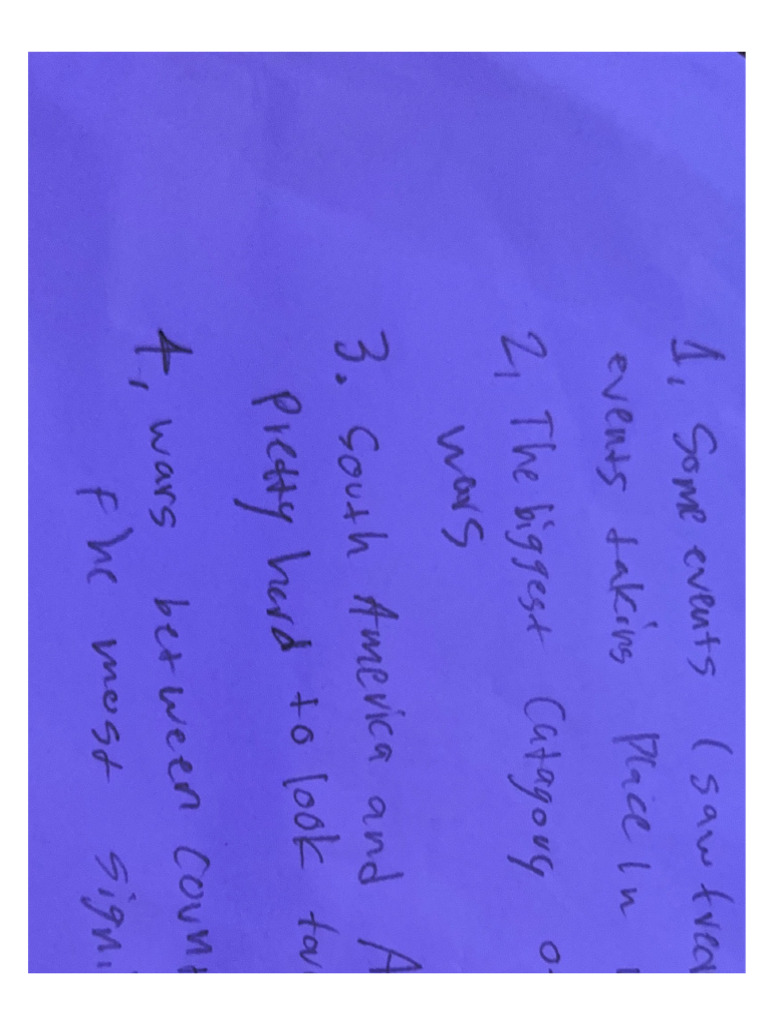 1. Some events (saw
events taking Place In
2, The biggest Catagory
wars
3. South America and
pretty hard to look
4, wars between
the most